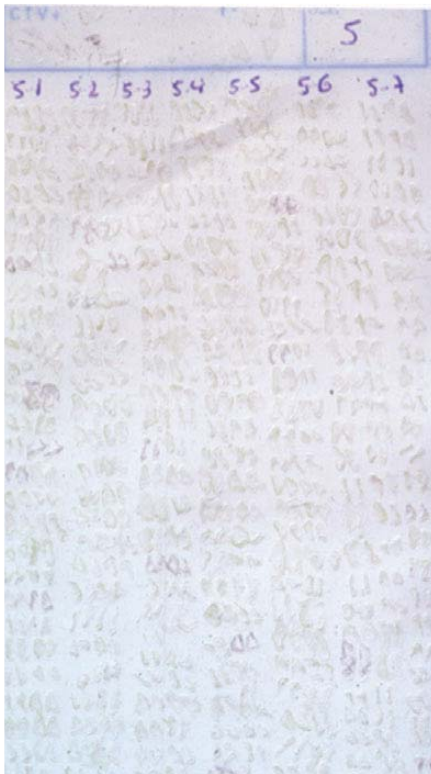 CTV+
5
5.1 5.2 5.3 5.4 5.5 5.6 5.7